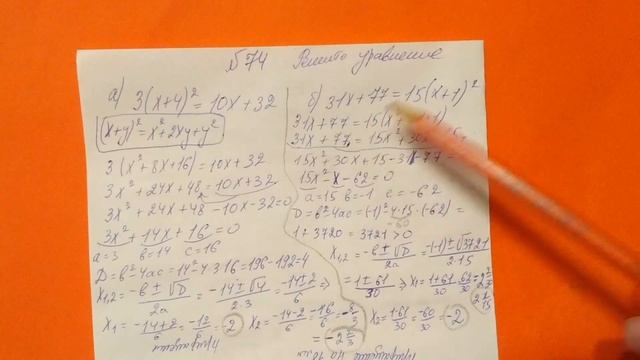 №74 Решите уравнение
а) 3(x+4)² = 10x+32
(x+y)² = x²+2xy+y²
3(x²+8x+16) = 10x+32
3x²+24x+48 = 10x+32
3x²+24x+48-10x-32=0
3x²+14x+16=0
a=3 b=14 c=16
D=b²-4ac=14²-4·3·16=196-192=4
x₁,₂ = (-b±√D)/2a = (-14±√4)/(2·3) = (-14±2)/6
x₁ = (-14+2)/6 = -12/6 = -2 x₂ = (-14-2)/6 = -16/6 = -8/3
= -2 2/3
б) 31x+77=15(x+1)²
31x+77=15(x²
31x+77=15x²+30x
15x²+30x+15-31x-77=
15x²-x-62=0
a=15 b=-1 c=-62
D=b²-4ac=(-1)²-4·15·(-62)=
1+3720=3721>0
x₁,₂ = (-b±√D)/2a = (-(-1)±√3721)/(2·15)
= (1±61)/30 ⇒ x₁ = (1+61)/30 = 62/30 = 2 2/30
2 1/15
x₂ = (1-61)/30 = -60/30 = -2